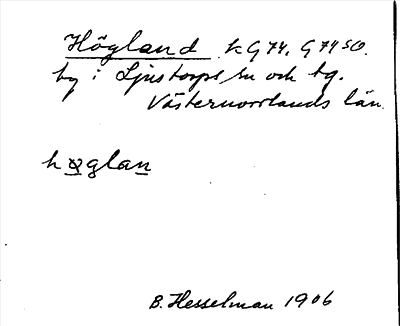 Högland k G 74, G 74 SO.
by i Ljustorps sn och tg.
Västernorrlands län.
høglan
B. Hesselman 1906